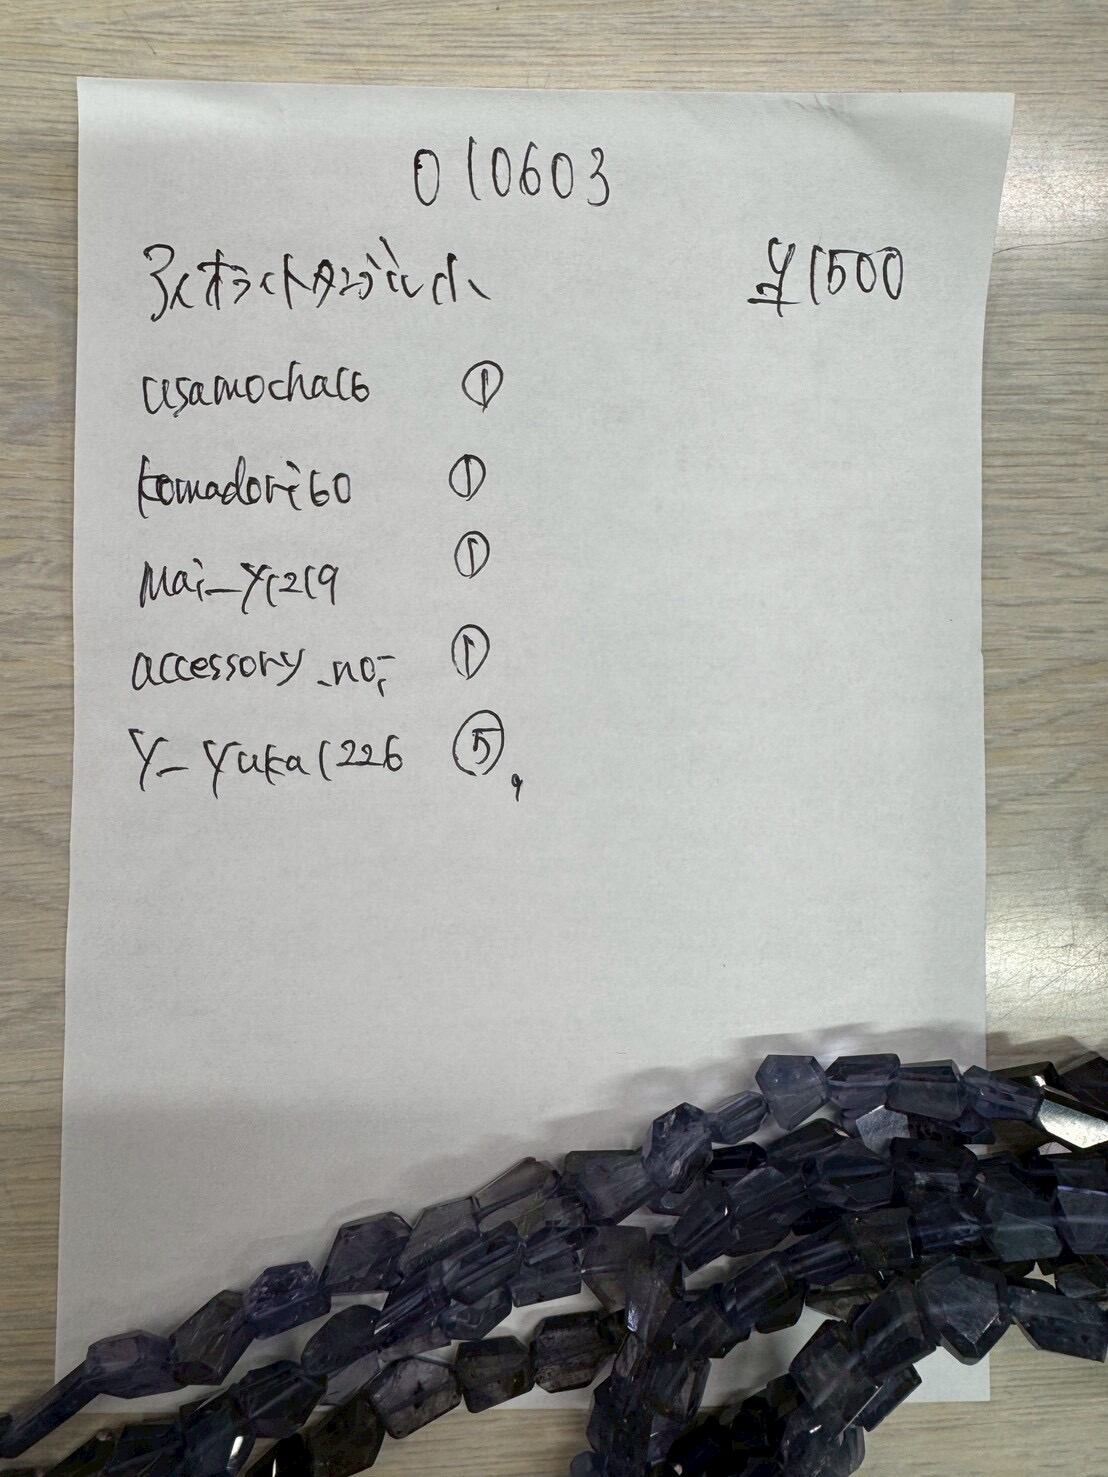 010603
アイオライトタンブル小 ¥1500
usamocha16 ①
komadori60 ①
Mai_y1219 ①
accessory_noi ①
Y_yuka1226 ⑤